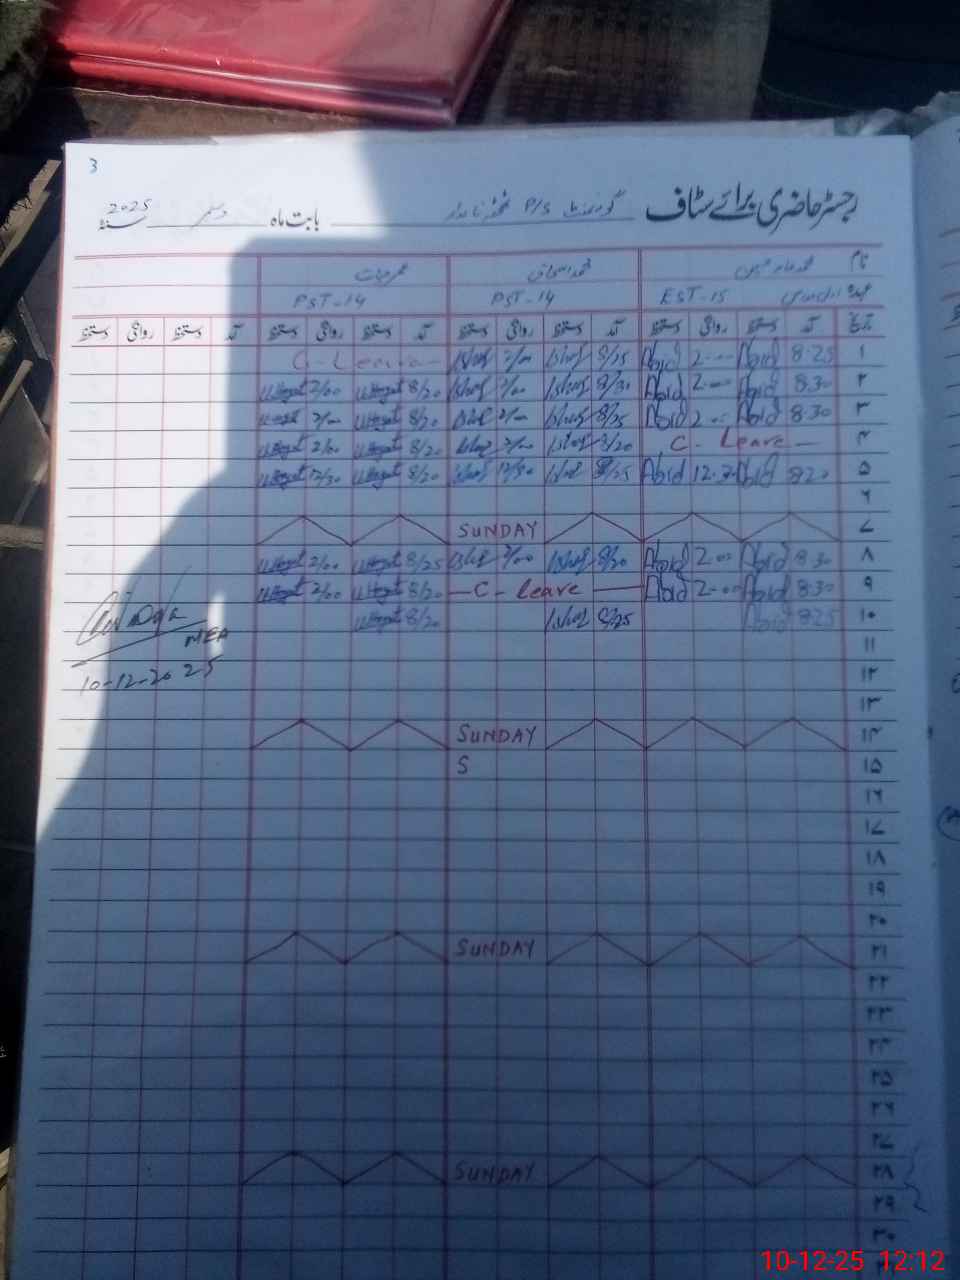 3
رجسٹر حاضری برائے سٹاف گورنمنٹ P/S بابت ماہ دسمبر 2025 سنہ
نام
عہدہ EST-15 PST-14 PST-14
تاریخ آمد دستخط روانگی دستخط آمد دستخط روانگی دستخط آمد دستخط روانگی دستخط آمد دستخط روانگی دستخط
۱ 8.25 Abid 2-00 Abid 8/25 Ishaq 2/00 Ishaq C-Leave
۲ 8.30 Abid 2-00 Abid 8/30 Ishaq 2/00 Ishaq 8/20 2/00
۳ 8.30 Abid 2-00 Abid 8/25 Ishaq 2/00 Ishaq 8/20 2/00
۴ C-Leave 8/20 Ishaq 2/00 Ishaq 8/20 2/00
۵ 8.20 Abid 12.30 Abid 8/25 Ishaq 12/30 Ishaq 8/20 12/30
۶
۷ SUNDAY
۸ 8.30 Abid 2-00 Abid 8/20 Ishaq 2/00 Ishaq 8/25 2/00
۹ 8.30 Abid 2-00 Abid C-Leave 8/20 2/00
۱۰ 8.25 Abid 8/25 Ishaq 8/20
MEA
10-12-2025
۱۱
۱۲
۱۳
۱۴ SUNDAY
۱۵ S
۱۶
۱۷
۱۸
۱۹
۲۰
۲۱ SUNDAY
۲۲
۲۳
۲۴
۲۵
۲۶
۲۷
۲۸ SUNDAY
۲۹
۳۰
10-12-25 12:12